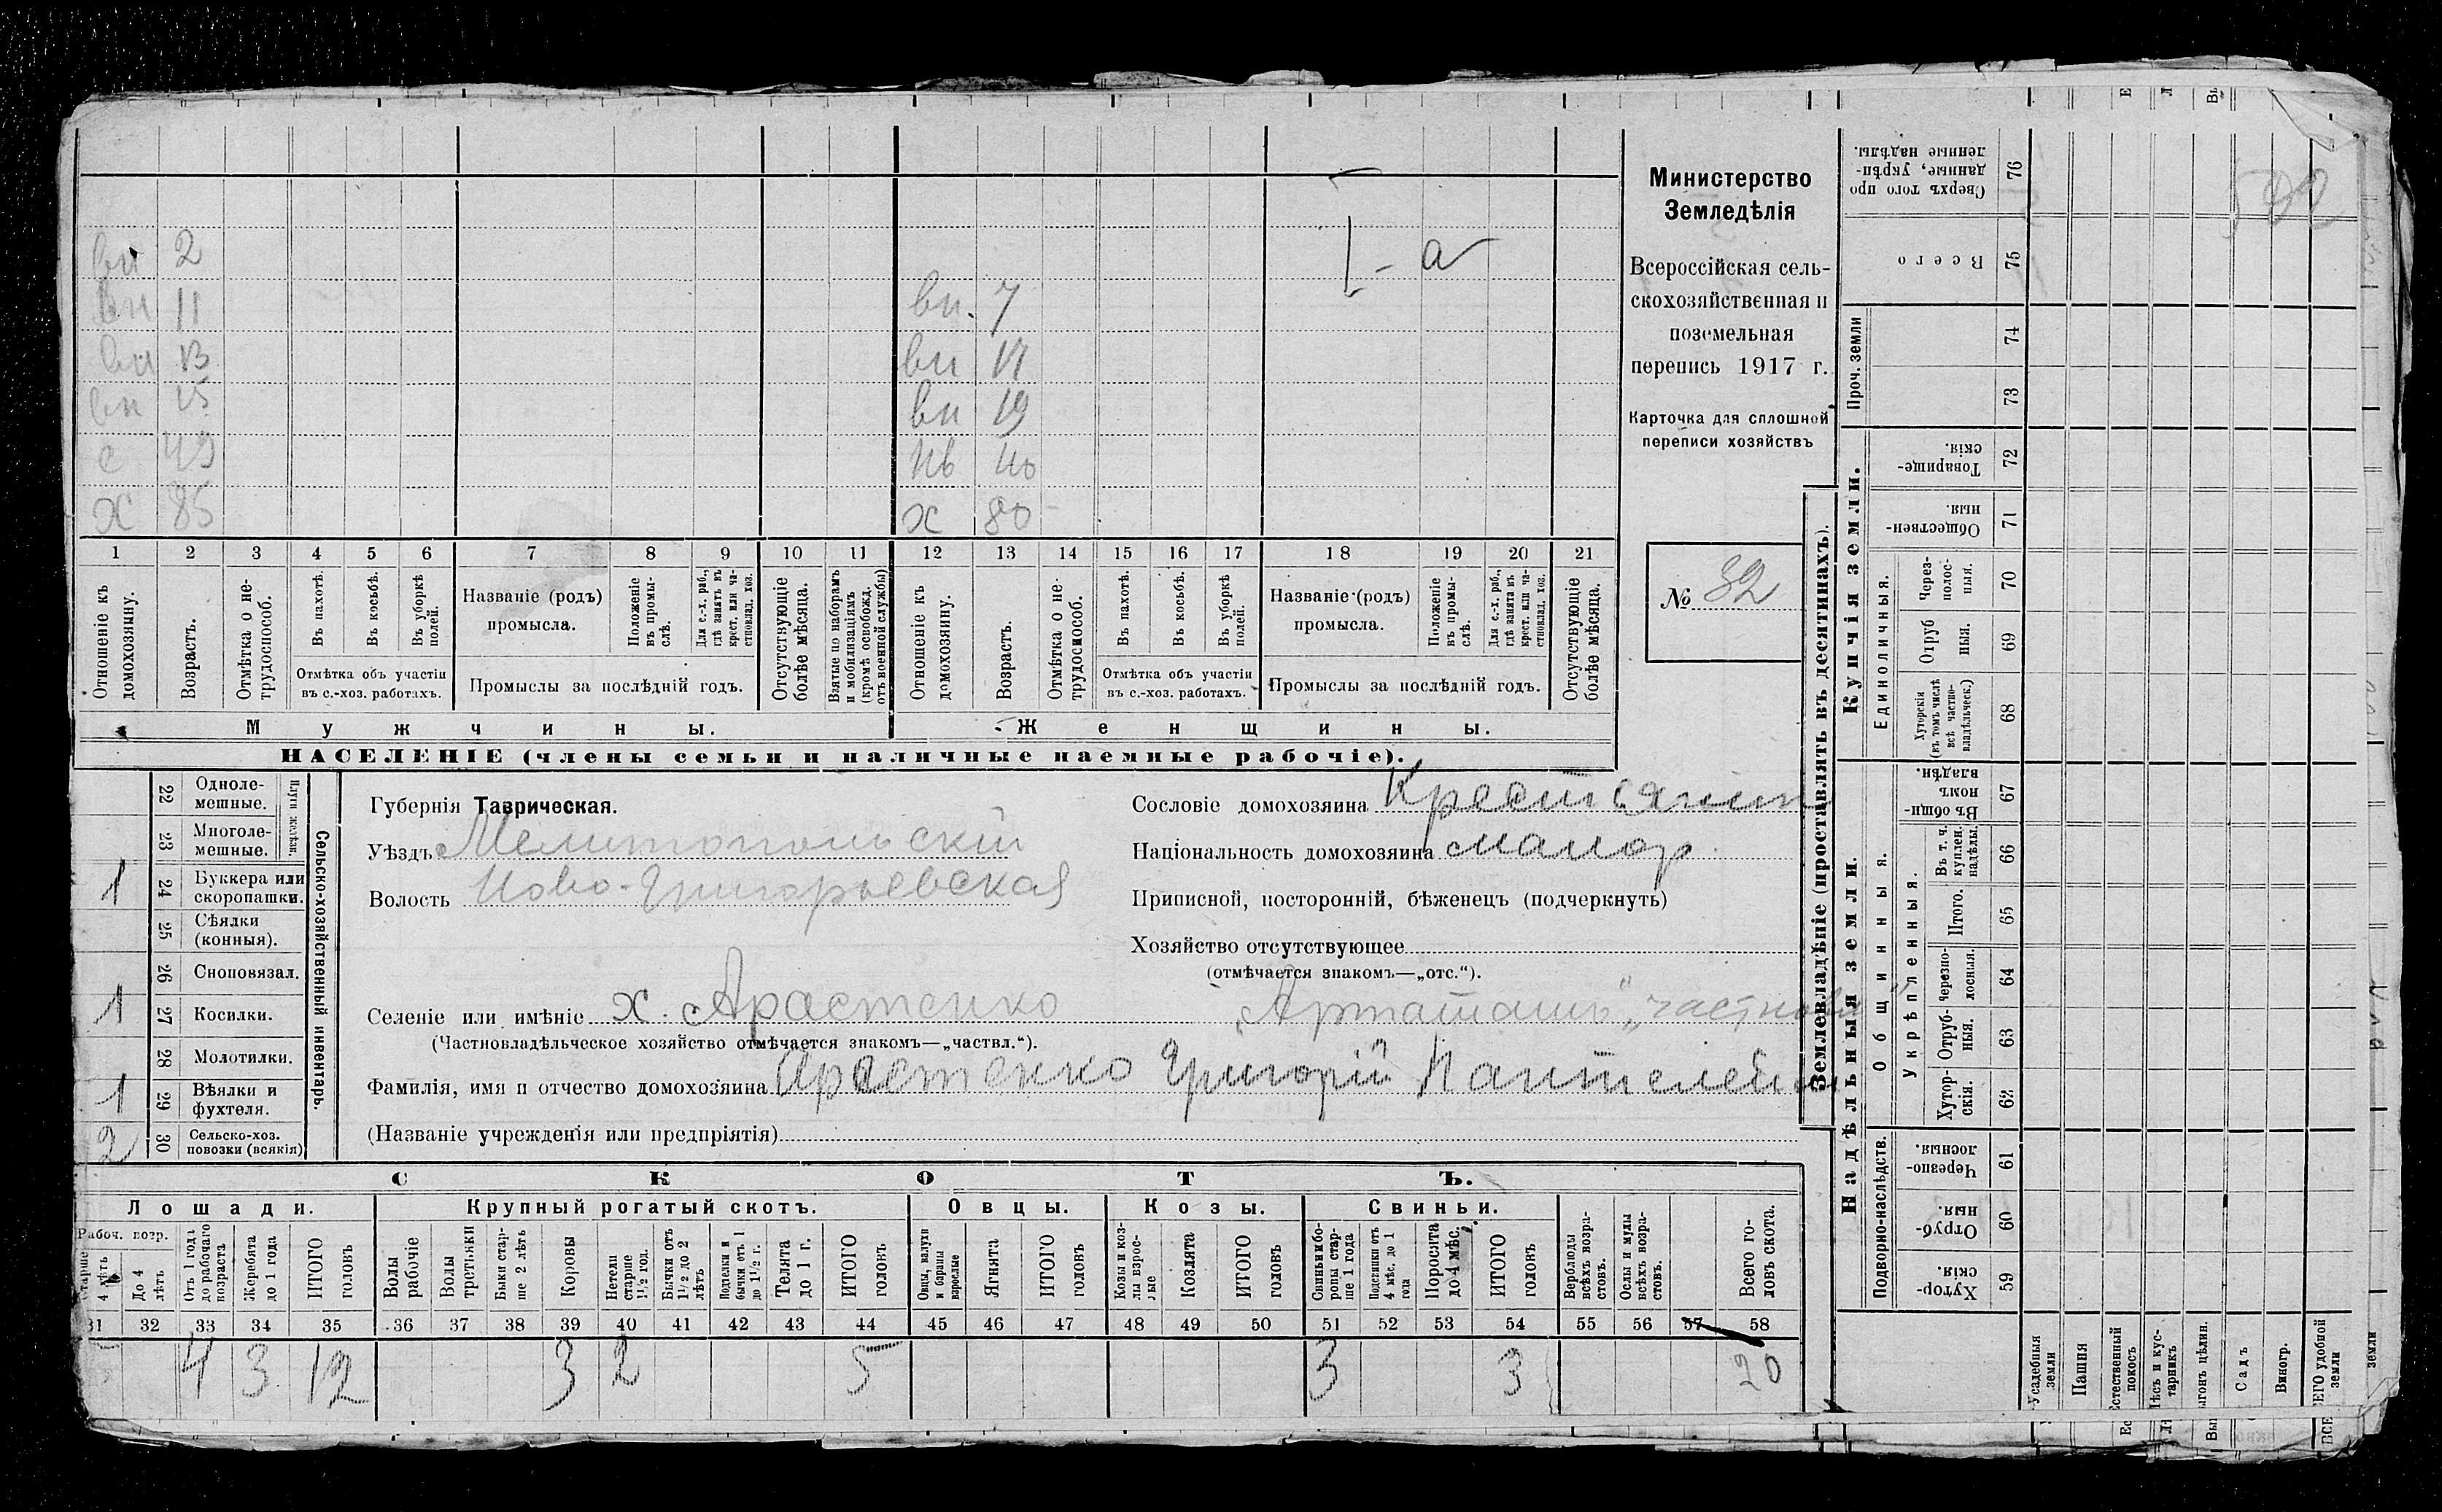 Министерство
Земледѣлія
Всероссійская сель-
скохозяйственная и
поземельная
перепись 1917 г.
Карточка для сплошной
переписи хозяйствъ
№ 32
вн 2
вн 11 вн. 7
вн 13 вн 17
вн 15 вн 19
с 49 нв 40
х 85 х 80
1 2 3 4 5 6 7 8 9 10 11 12 13 14 15 16 17 18 19 20 21
Отношеніе къ домохозяину.
Возрастъ.
Отмѣтка о не-трудоспособ.
Въ пахотѣ.
Въ косьбѣ.
Въ уборкѣ полей.
Отмѣтка объ участіи въ с.-хоз. работахъ.
Названіе (родъ) промысла.
Положеніе въ промы-слѣ.
Для с.-х. раб., гдѣ занятъ въ крест. или ча-стновлад. хоз.
Промыслы за послѣдній годъ.
Отсутствующіе болѣе мѣсяца.
Взятые по наборамъ и мобилизаціямъ (кромѣ освобожд. отъ военной службы)
Отношеніе къ домохозяину.
Возрастъ.
Отмѣтка о не-трудоспособ.
Въ пахотѣ.
Въ косьбѣ.
Въ уборкѣ полей.
Отмѣтка объ участіи въ с.-хоз. работахъ.
Названіе (родъ) промысла.
Положеніе въ промы-слѣ.
Для с.-х. раб., гдѣ занята въ крест. или ча-стновлад. хоз.
Промыслы за послѣдній годъ.
Отсутствующіе болѣе мѣсяца.
Мужчины. Женщины.
НАСЕЛЕНІЕ (члены семьи и наличные наемные рабочіе).
Сельско-хозяйственный инвентарь.
Плуги желѣзн.
22 Одноле-мешные.
23 Многоле-мешные.
1 24 Буккера или скоропашки.
25 Сѣялки (конныя).
26 Сноповязал.
1 27 Косилки.
28 Молотилки.
1 29 Вѣялки и фухтеля.
2 30 Сельско-хоз. повозки (всякія)
Губернія Таврическая.
Уѣздъ Мелитопольскій
Волость Ново-Григорьевская
Сословіе домохозяина Крестьянин
Національность домохозяина малор
Приписной, посторонній, бѣженецъ (подчеркнуть)
Хозяйство отсутствующее
(отмѣчается знакомъ—„отс.“).
Селеніе или имѣніе х. Арастенко
(Частновладѣльческое хозяйство отмѣчается знакомъ—„частвл.“).
Фамилія, имя и отчество домохозяина Арастенко Григорій Пантелейм
(Названіе учрежденія или предпріятія)
СКОТЪ.
Лошади. Крупный рогатый скотъ. Овцы. Козы. Свиньи.
Рабоч. возр.
Старше 4 лѣтъ
До 4 лѣтъ
Отъ 1 года до рабочаго возраста
Жеребята до 1 года
ИТОГО головъ
Волы рабочіе
Волы третьяки
Быки стар-ше 2 лѣтъ
Коровы
Нетели старше 1½ год.
Бычки отъ 1½ до 2 лѣтъ
Подтелки и бычки отъ 1 до 1½ г.
Телята до 1 г.
ИТОГО головъ
Овцы, валухи и бараны взрослые
Ягнята
ИТОГО головъ
Козы и коз-лы взрос-лые
Козлята
ИТОГО головъ
Свиньи и бо-ровы стар-ше 1 года
Подсвинки отъ 4 мѣс. до 1 года
Поросята до 4 мѣс.
ИТОГО головъ
Верблюды всѣхъ возра-стовъ.
Ослы и мулы всѣхъ возра-стовъ.
Всего го-ловъ скота.
31 32 33 34 35 36 37 38 39 40 41 42 43 44 45 46 47 48 49 50 51 52 53 54 55 56 57 58
4 3 12 3 2 5 3 3 20
Землевладѣніе (проставлять въ десятинахъ).
Купчія земли.
Надѣльныя земли.
Сверхъ того про-данные, укрѣп-ленные надѣлы. 76
Всего 75
Проч. земли 74 73
Товарище-скія. 72
Обществен-ныя. 71
Единоличныя.
Через-полос-ныя. 70
Отруб ныя. 69
Хуторскія (въ томъ числѣ всѣ частно-владѣльческ.) 68
Общинныя.
Въ общи-номъ владѣн. 67
Укрѣпленныя.
Въ т. ч. куплен. надѣлы. 66
Итого. 65
Черезпо-лосныя. 64
Отруб-ныя. 63
Хутор-скія. 62
Подворно-наслѣдств.
Черезпо-лосныя. 61
Отруб-ныя. 60
Хутор-скія. 59
Усадебныя земли
Пашня
Естественный покосъ
Лѣсъ и кус-тарникъ
Выгонъ цѣлин.
Садъ
Виногр.
ВСЕГО удобной земли